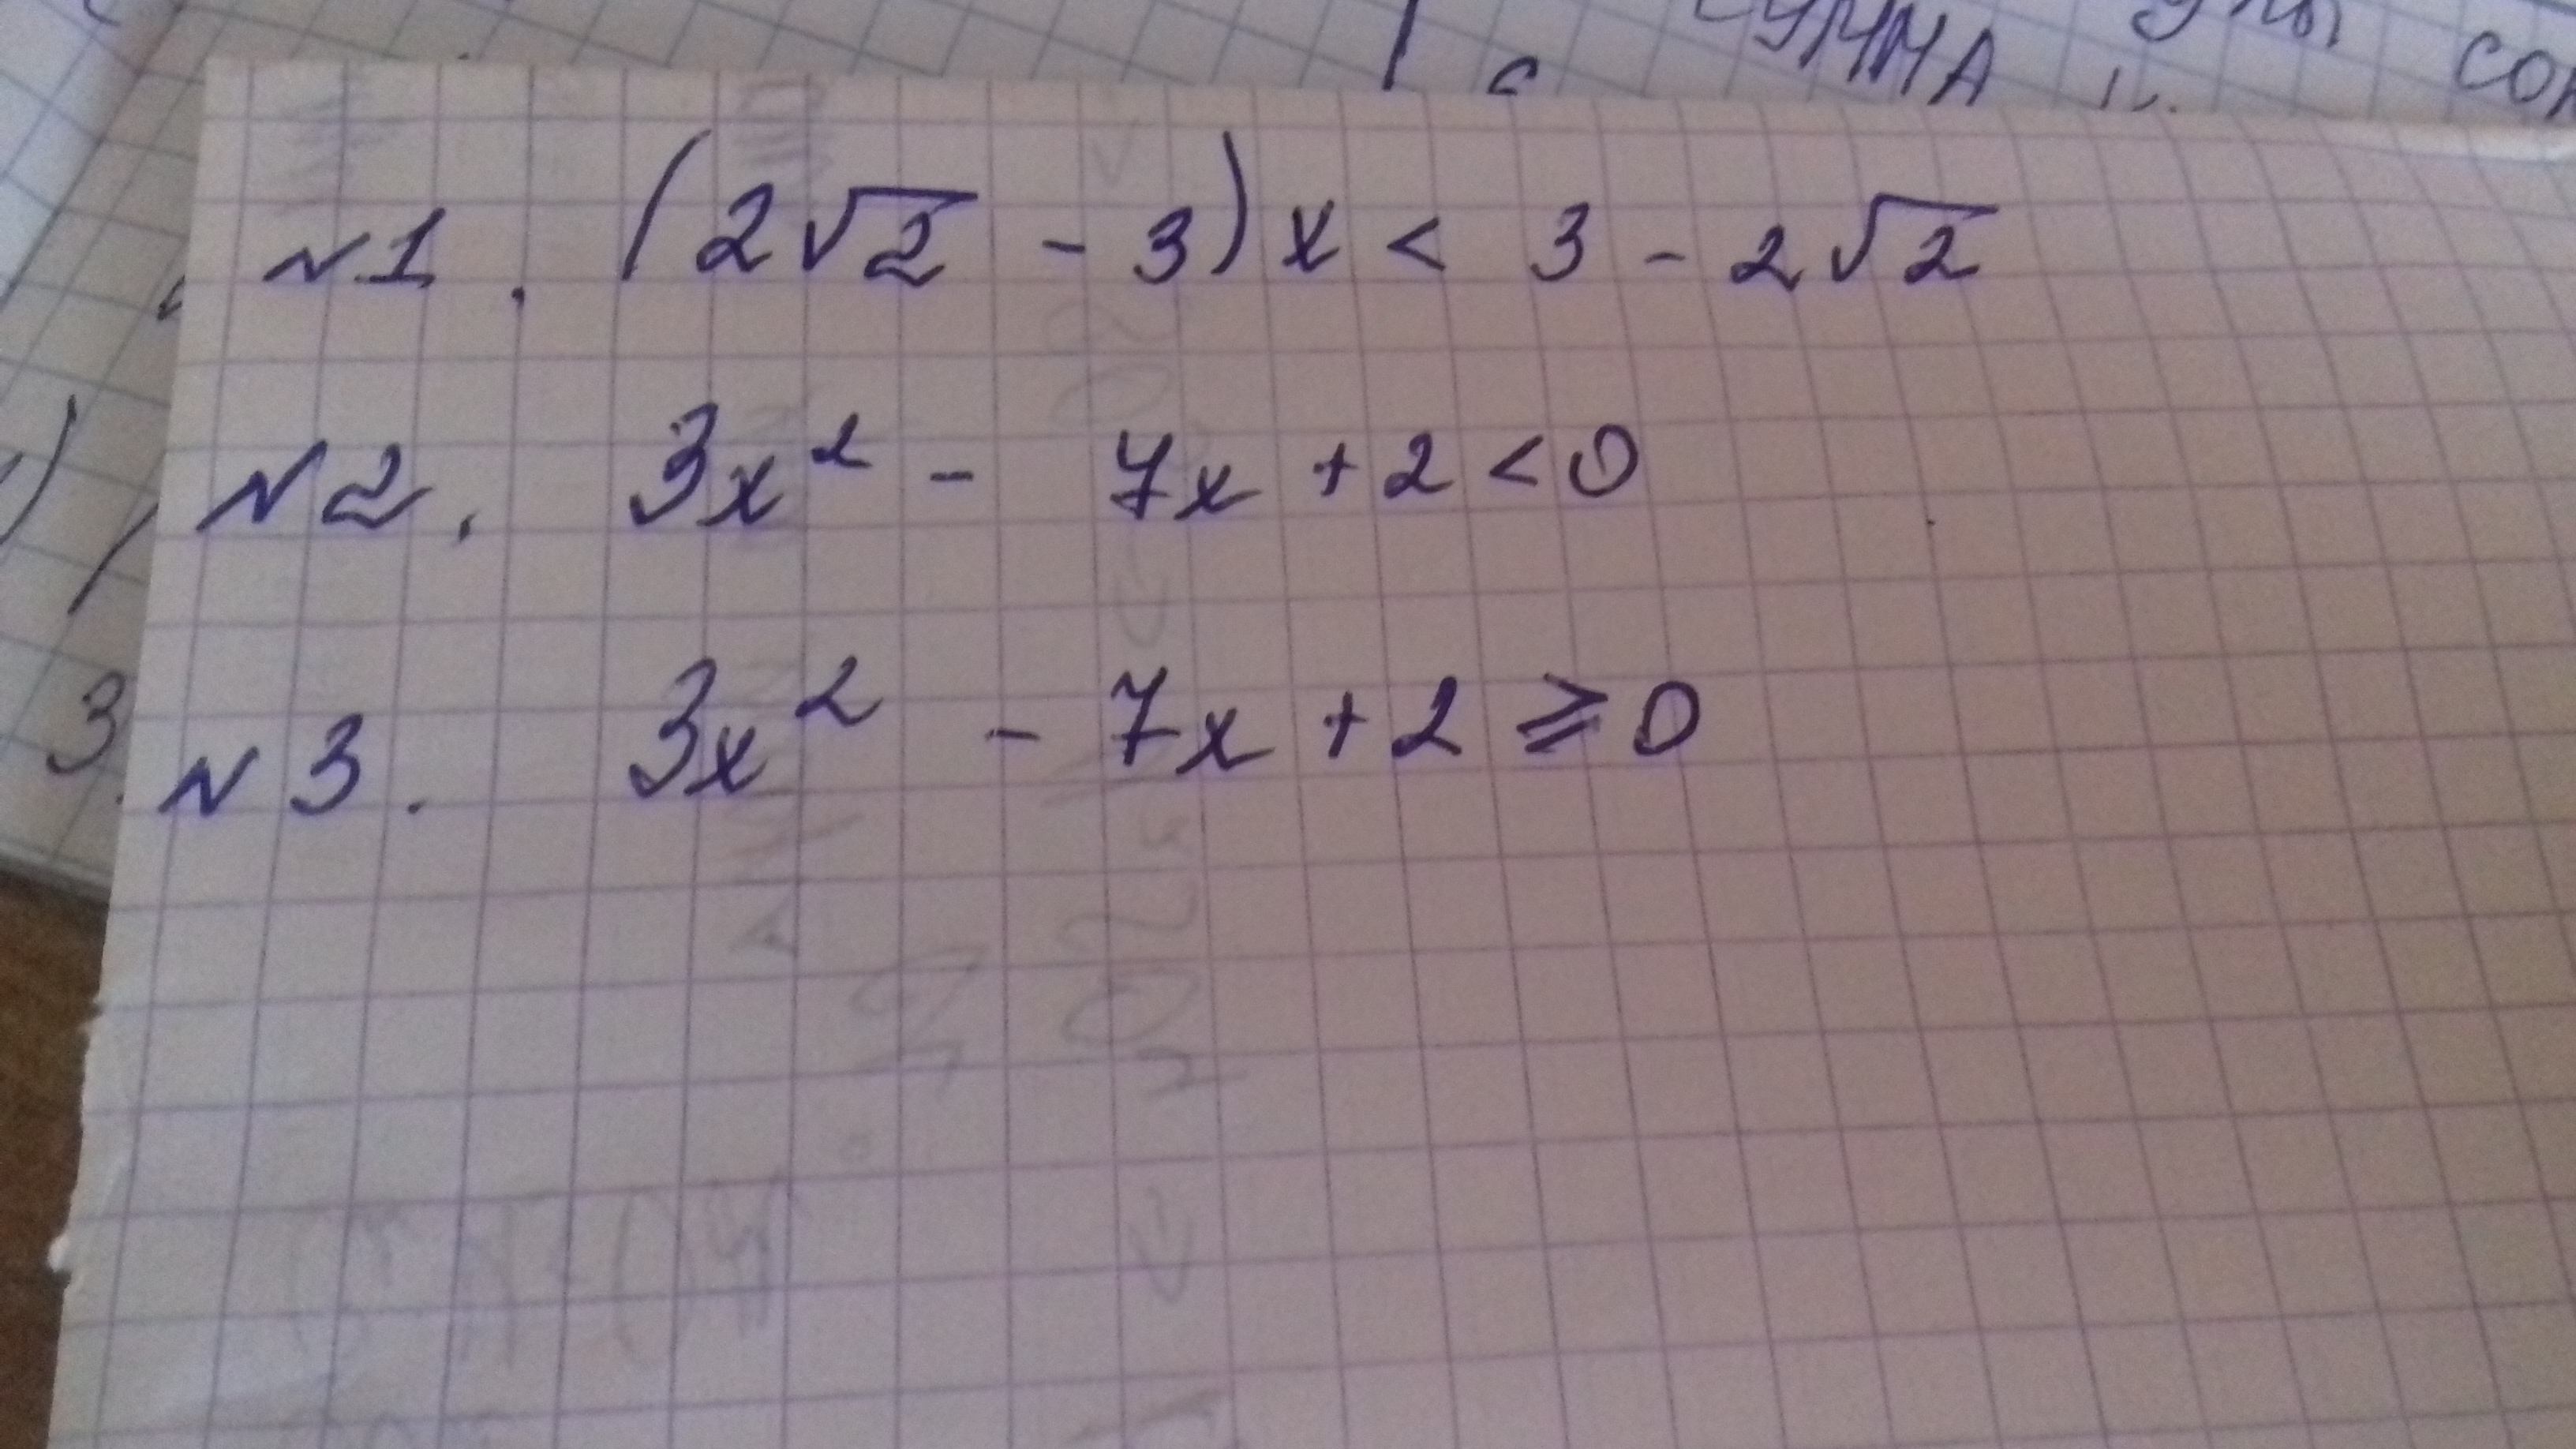 СУММА
N1. (2√2 - 3)x < 3 - 2√2
N2. 3x² - 7x + 2 < 0
N3. 3x² - 7x + 2 ⩾ 0
3